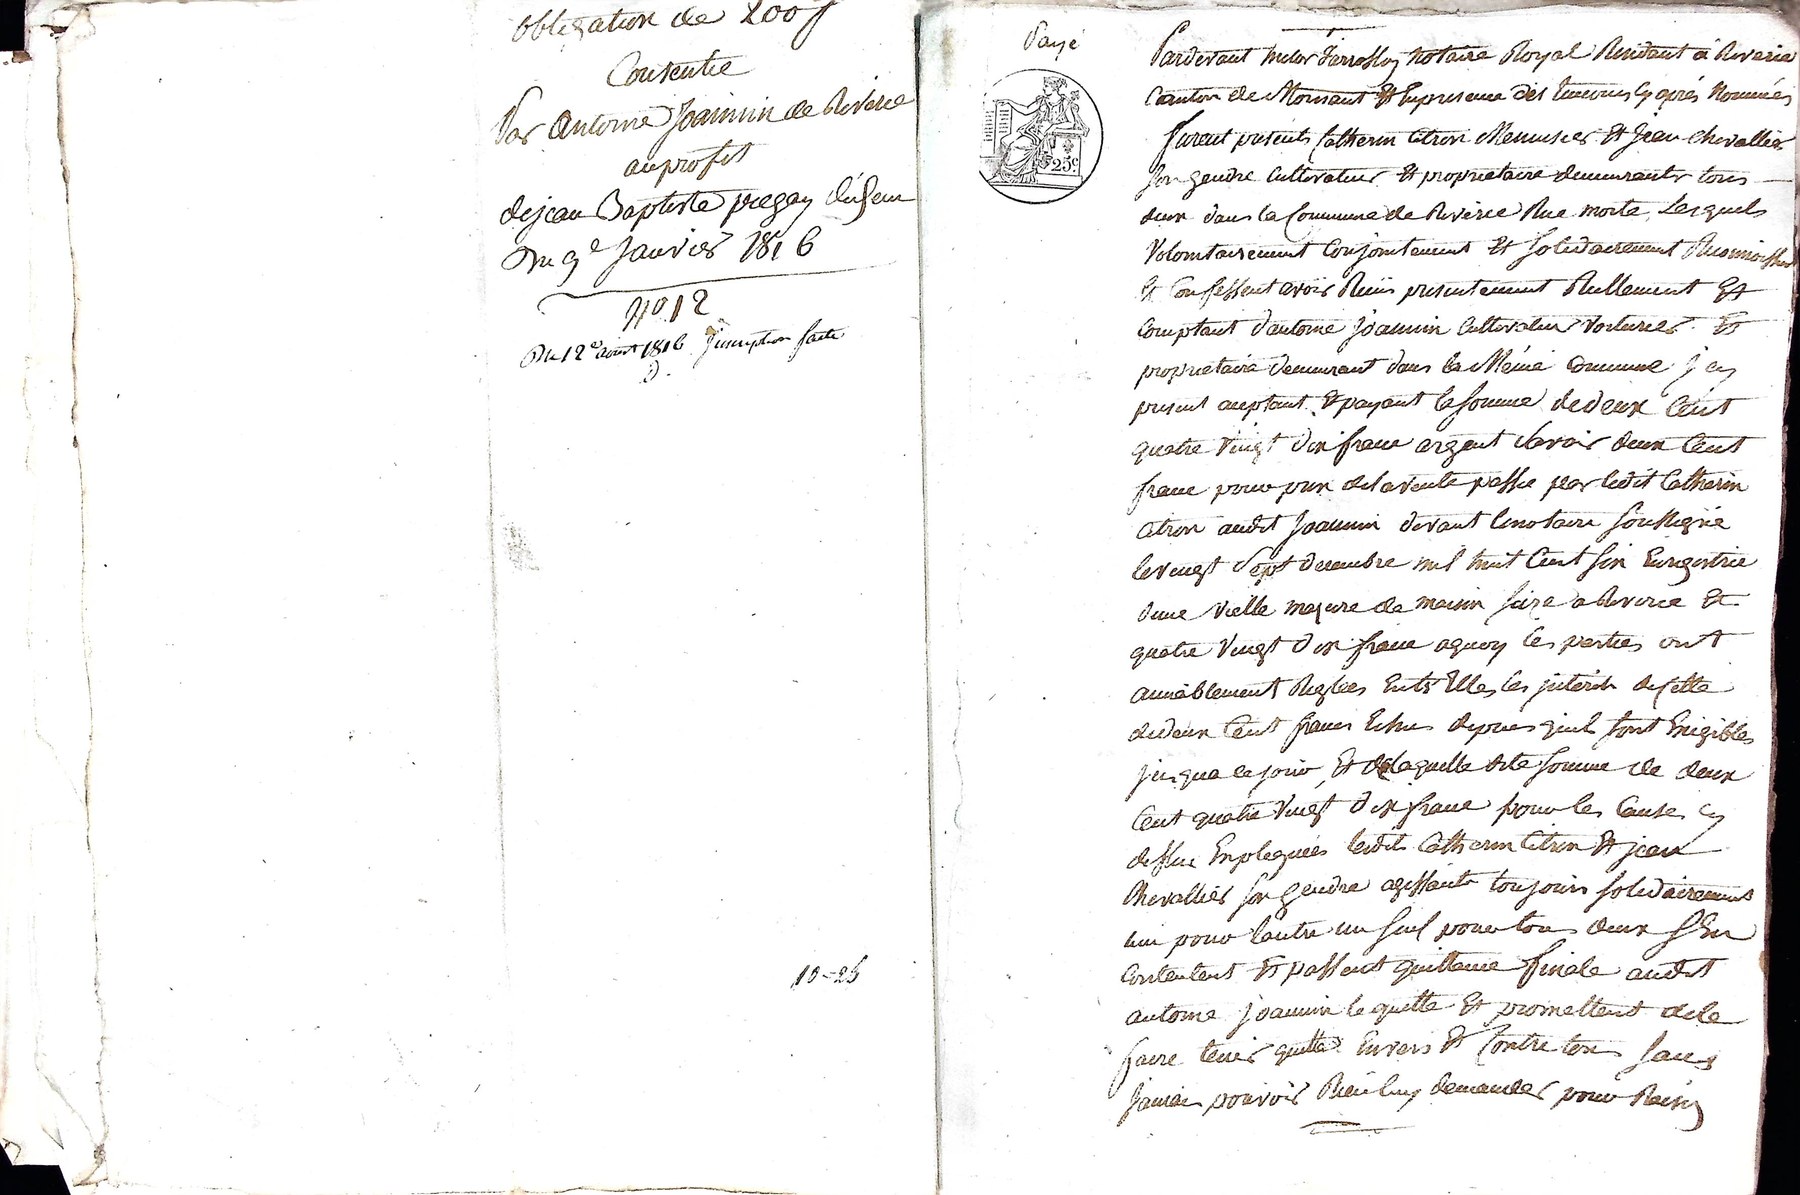 obligation de 200 f
Consentie
Par Antoine Joannin de Riverie
au profit
de jean Baptiste pregay
Du 9e Janvier 1816
No 12
Du 12e aout 1816 Jnscription faite
10 = 26
Payé
25c
Pardevant notaire Royal Residant à Riverie
Canton de Mornant Et En presence des temoins Cy aprés Nommés
furent presents Catherin Citron Menuisier Et Jean Chevallier
son gendre Cultivateur Et proprietaire demeurants tous
deux dans la Commune de Riverie Rue morte, Lesquels
Volontairement Conjointement Et Solidairement Reconnoissent
Et Confessent avoir Reçu presentement Reellement Et
Comptant d'antoine Joannin Cultivateur Voiturier Et
proprietaire demeurant dans la Méme Commune Jcy
present aceptant Et payant la Somme de deux Cent
quatre Vingt dix franc argent Savoir deux Cent
franc pour prix de la vente passée par ledit Catherin
Citron audit Joannin devant le notaire Soussigné
le vingt Sept decembre mil huit Cent Six Enregistrée
dune Vielle mazure de maison size a Riverie Et
quatre Vingt dix franc a quoy les parties ont
amiablement Reglées Entr'Elles les jnterets de Cette
de deux Cent francs Echus depuis quils sont Exigibles
jusqua ce jour, Et de laquelle dite Somme de deux
Cent quatre Vingt dix franc pour les Causes Cy
dessus Expliquées lesdits Catherin Citron Et jean
Chevallier son gendre agissants toujours Solidairement
un pour lautre un Seul pour tous deux S'En
Contentent Et passent quittance finale audit
antoine Joannin le quitte Et promettent de le
faire tenir quitte Envers Et Contre tous Sans
Jamais pouvoir Rien luy demander pour Raison